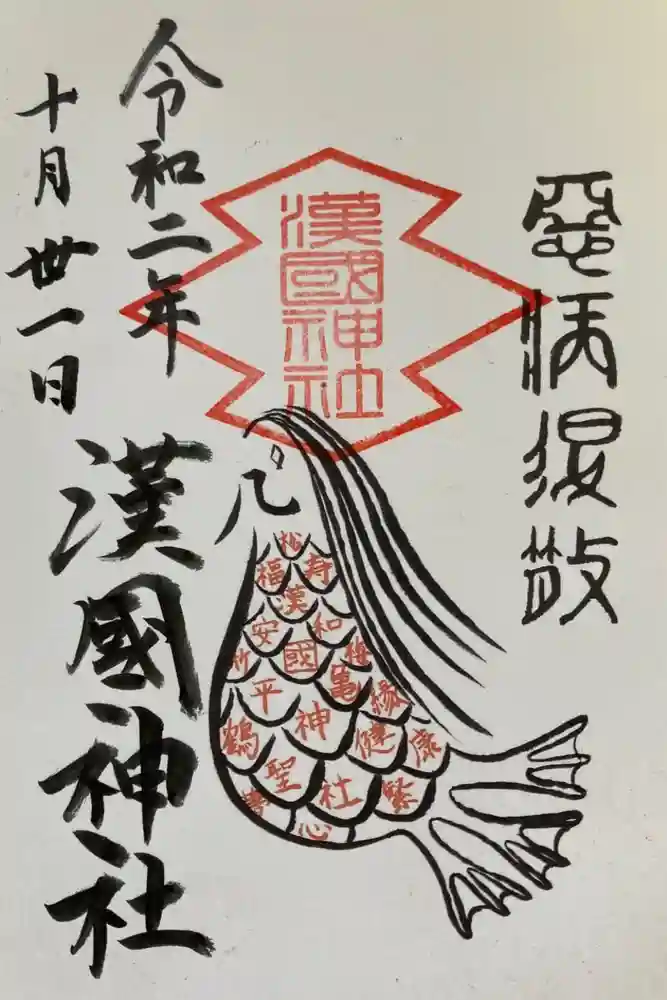 惡病退散
漢國神社
松
寿
福
漢
和
安
國
梅
竹
亀
平
縁
神
健
康
鶴
聖
社
繁
心
令和二年
十月丗一日
漢國神社